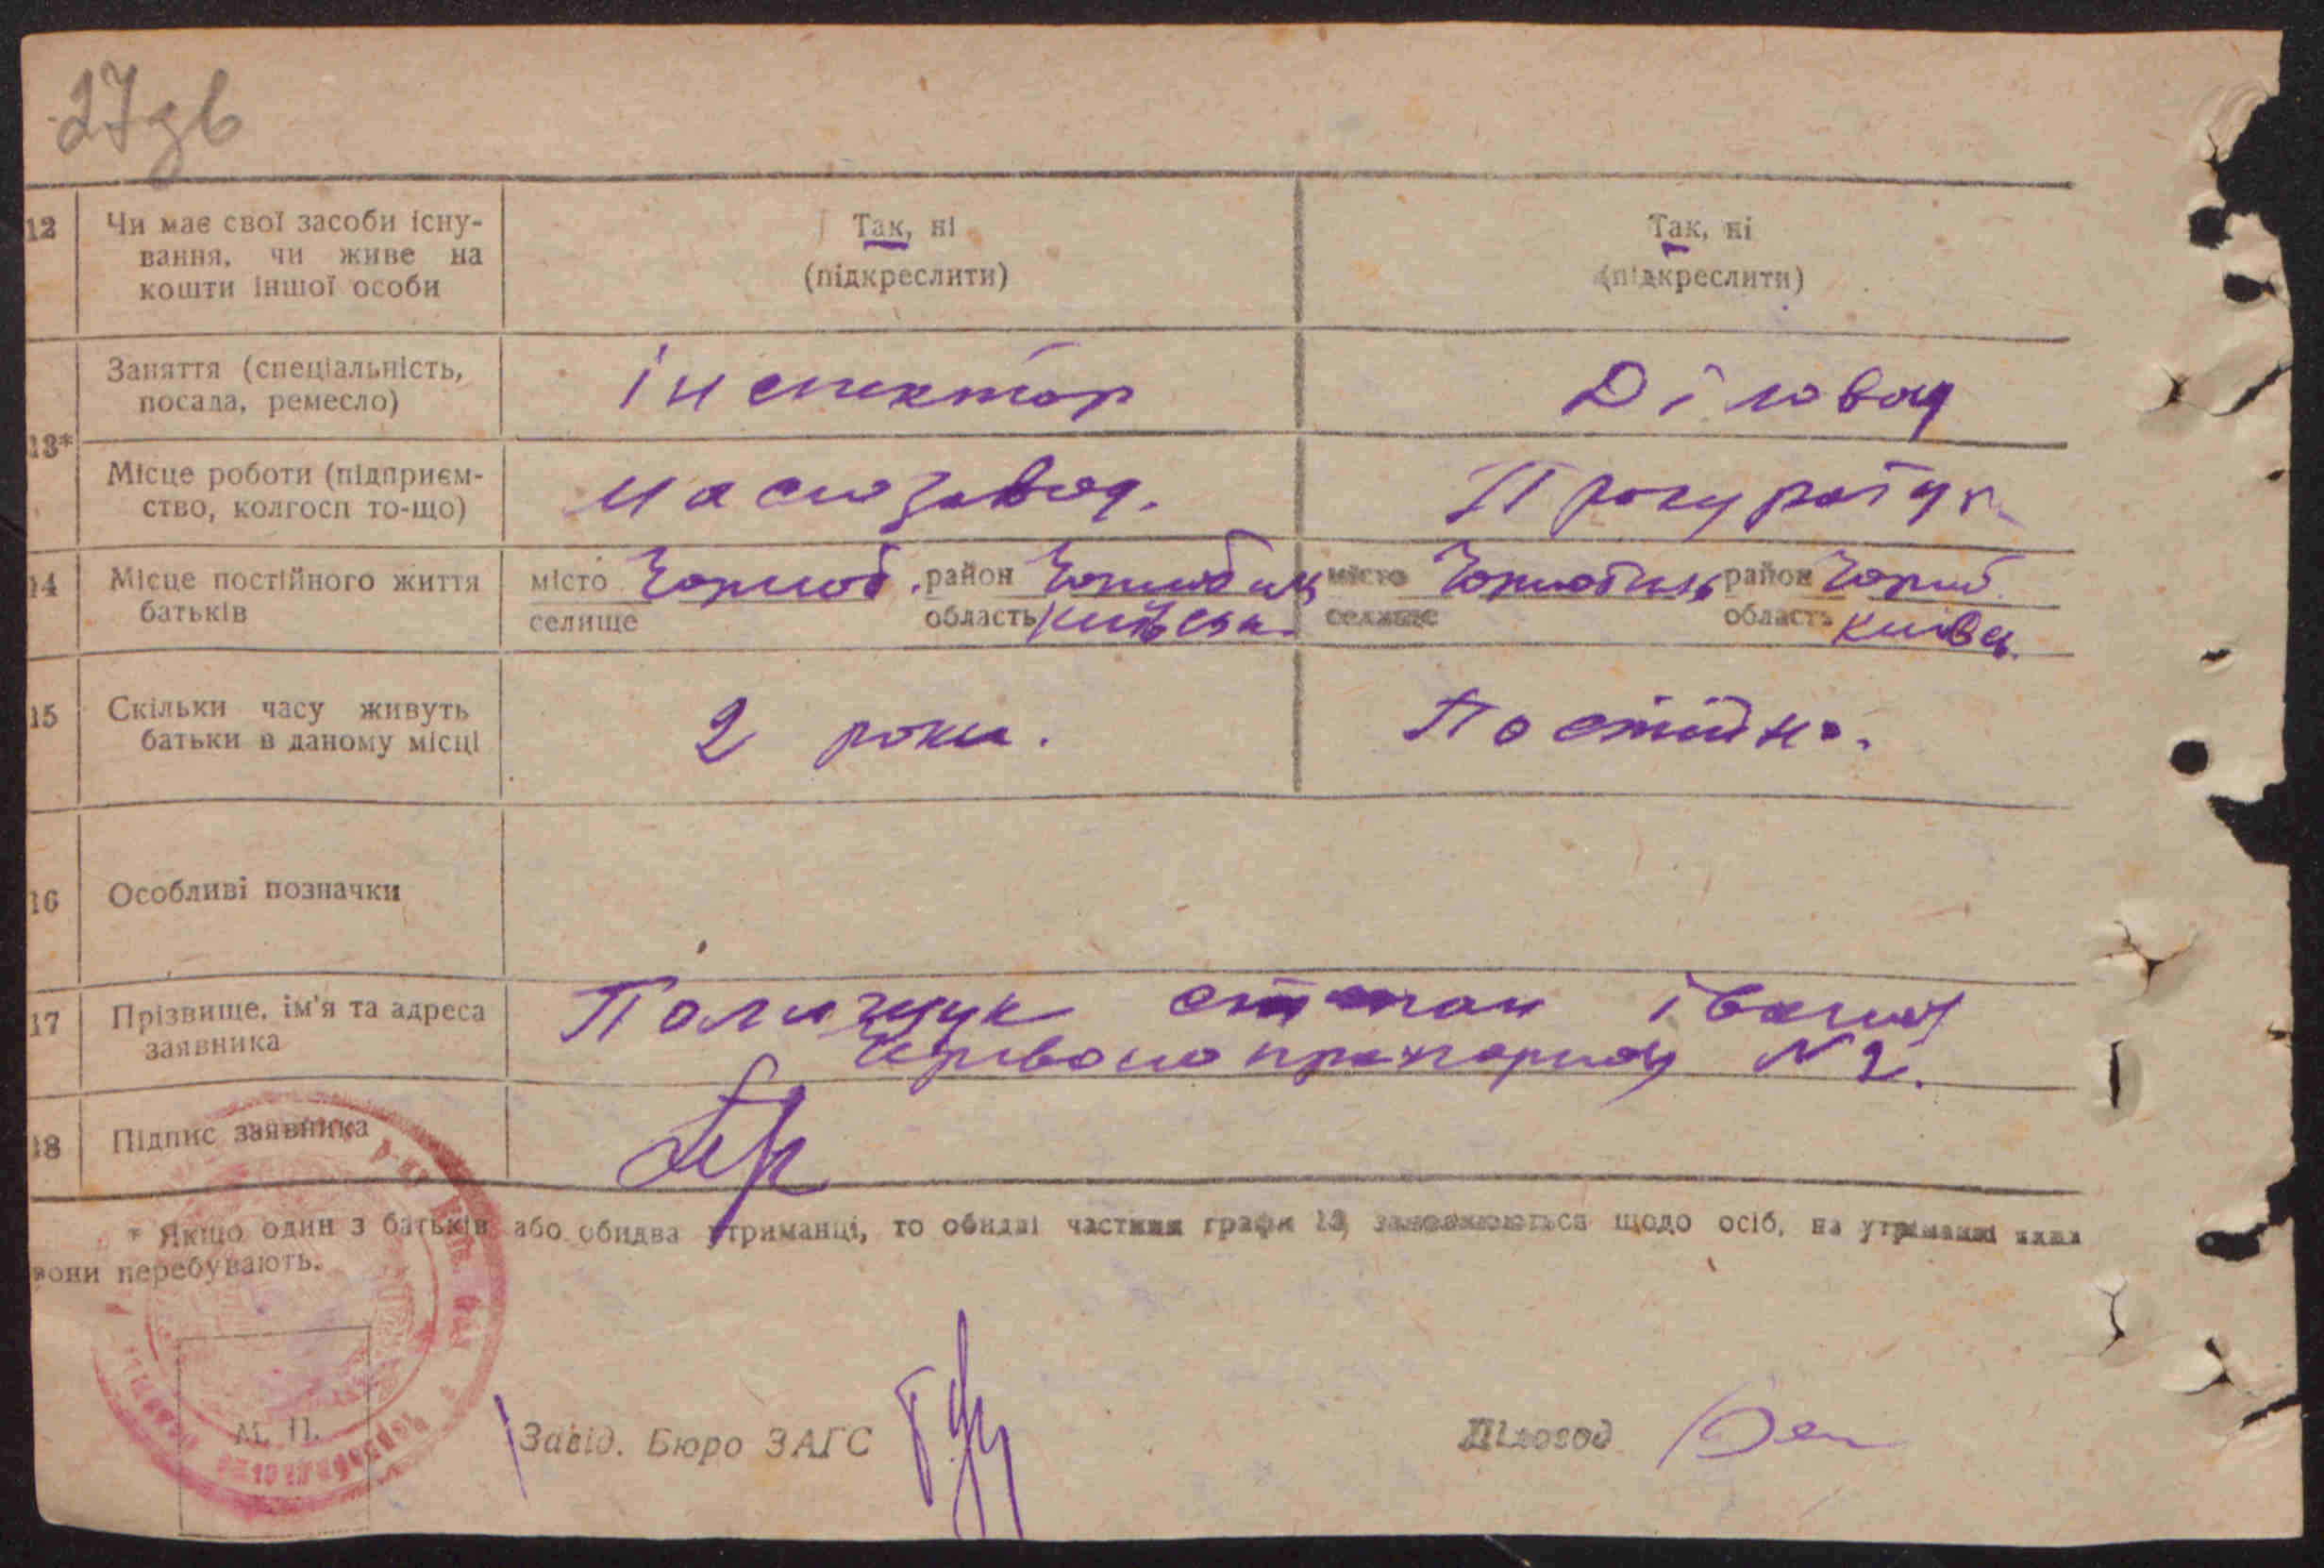 27зв
12 Чи має свої засоби існу-
вання, чи живе на
кошти іншої особи
Так, ні
(підкреслити)
Так, ні
(підкреслити)
13*
Заняття (спеціальність,
посада, ремесло)
інспектор
Діловод
Місце роботи (підприєм-
ство, колгосп то-що)
маслозавод.
Прокуратур.
14 Місце постійного життя
батьків
місто Чорноб. район Чорнобиль
селище область Київськ.
місто Чорнобиль район Чорноб.
селище область Київсь.
15 Скільки часу живуть
батьки в даному місці
2 роки.
Постійно.
16 Особливі позначки
17 Прізвище, ім'я та адреса
заявника
Поліщук степан іванов
Червонопрапорна N 2.
18 Підпис заявника
* Якщо один з батьків або обидва утриманці, то обидві частини графи 13 заповнюються щодо осіб, на утриманні яких
вони перебувають.
М. П.
Завід. Бюро ЗАГС
Діловод